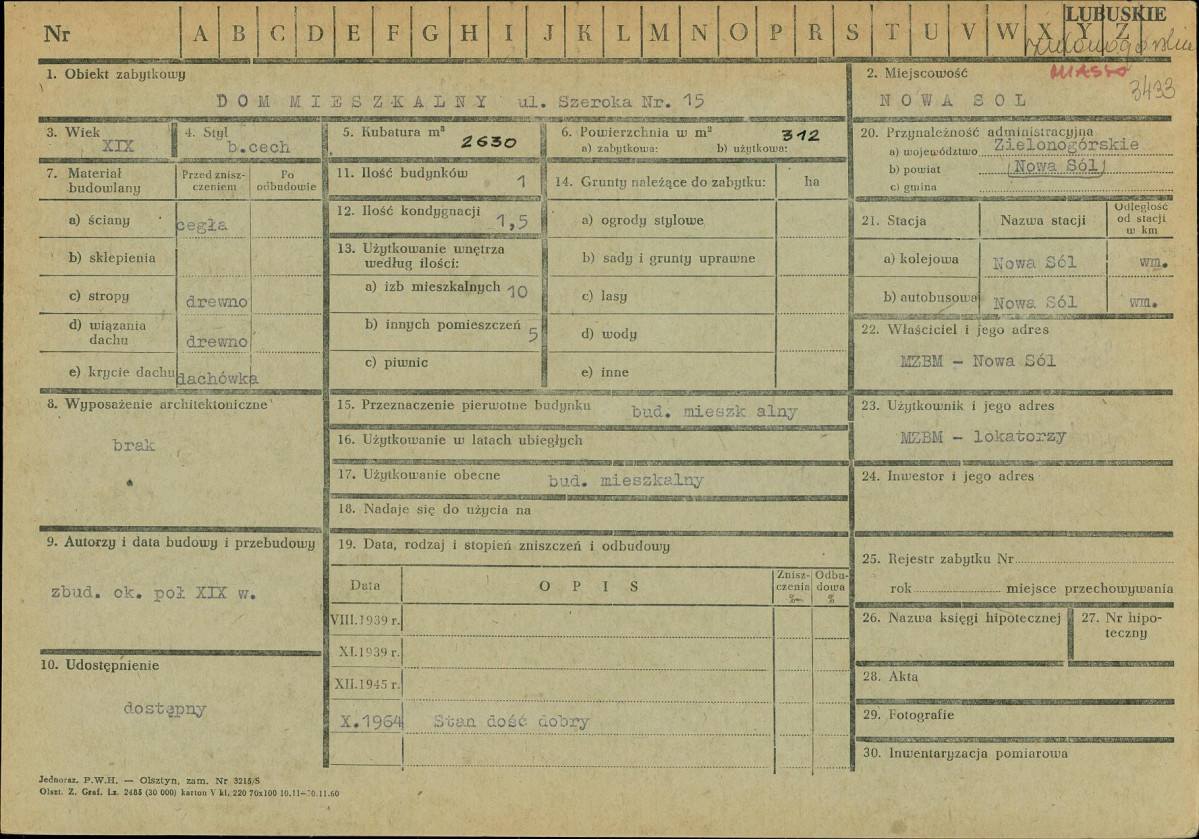 LUBUSKIE
Nr A B C D E F G H I J K L M N O P R S T U V W X Y Z
MIASTO
3433
1. Obiekt zabytkowy
DOM MIESZKALNY ul. Szeroka Nr. 15
2. Miejscowość
NOWA SOL
3. Wiek
XIX
4. Styl
b.cech
5. Kubatura m³
2630
6. Powierzchnia w m²
312
a) zabytkowa: b) użytkowa:
7. Materiał budowlany
Przed znisz-
czeniem
Po
odbudowie
a) ściany cegła
b) sklepienia
c) stropy drewno
d) wiązania
dachu drewno
e) krycie dachu dachówka
8. Wyposażenie architektoniczne
brak
9. Autorzy i data budowy i przebudowy
zbud. ok. poł XIX w.
10. Udostępnienie
dostępny
11. Ilość budynków
1
12. Ilość kondygnacji
1,5
13. Użytkowanie wnętrza
według ilości:
a) izb mieszkalnych 10
b) innych pomieszczeń 5
c) piwnic
14. Grunty należące do zabytku: ha
a) ogrody stylowe
b) sady i grunty uprawne
c) lasy
d) wody
e) inne
15. Przeznaczenie pierwotne budynku bud. mieszk alny
16. Użytkowanie w latach ubiegłych
17. Użytkowanie obecne bud. mieszkalny
18. Nadaje się do użycia na
19. Data, rodzaj i stopień zniszczeń i odbudowy
Data OPIS Znisz-
czenia
% Odbu-
dowa
%
VIII.1939 r.
XI.1939 r.
XII.1945 r.
X.1964 Stan dość dobry
20. Przynależność administracyjna
a) województwo Zielonogórskie
b) powiat (Nowa Sól)
c) gmina
21. Stacja Nazwa stacji Odległość
od stacji
w km
a) kolejowa Nowa Sól wm.
b) autobusowa Nowa Sól wm.
22. Właściciel i jego adres
MZBM - Nowa Sól
23. Użytkownik i jego adres
MZBM - lokatorzy
24. Inwestor i jego adres
25. Rejestr zabytku Nr
rok miejsce przechowywania
26. Nazwa księgi hipotecznej
27. Nr hipo-
teczny
28. Akta
29. Fotografie
30. Inwentaryzacja pomiarowa
Jednoraz. P.W.H. — Olsztyn, zam. Nr 3215/S
Olszt. Z. Graf. Lz. 2485 (30 000) karton V kl. 220 70x100 10.11-30.11.60